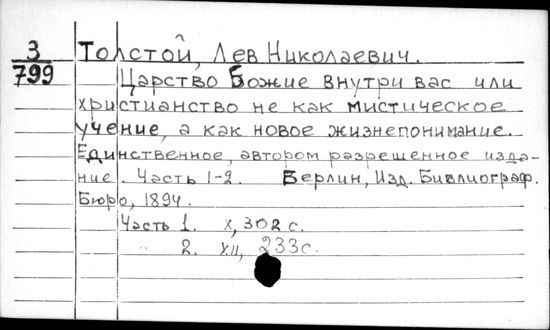 З Толстой, Лев Николаевич.
799 Царство Божие внутри вас или
христианство не как мистическое
учение, а как новое жизнепонимание.
Единственное, автором разрешенное изда-
ние. Часть 1-2. Берлин, Изд. Библиограф.
Бюро, 1894.
Часть 1. X, 302 с.
" 2. XII, 233с.